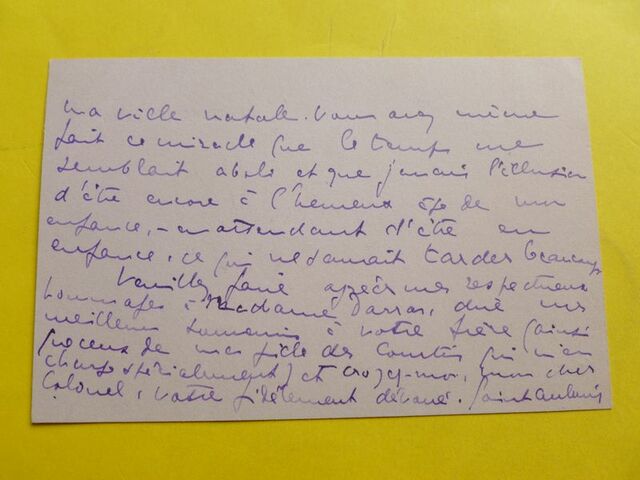 ma ville natale. Vous avez même
fait ce miracle que le temps me
semblait aboli et que j'avais l'illusion
d'être encore à l'heureux âge de mon
enfance, - en attendant d'être en
enfance, ce qui ne saurait tarder beaucoup
Veuillez faire agréer mes respectueux
hommages à Madame Darras, dire mes
meilleurs souvenirs à votre frère (ainsi
que ceux de ma fille des Courtis qui m'en
charge spécialement) et croyez-moi, mon cher
Colonel, votre fidèlement dévoué. Saint Aulaire